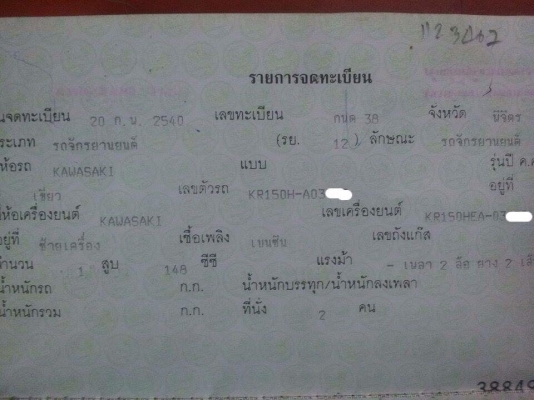 รายการจดทะเบียน
นจดทะเบียน 20 ก.พ. 2540 เลขทะเบียน 38 จังหวัด พิจิตร
ระเภท รถจักรยานยนต์ (รย. 12), ลักษณะ รถจักรยานยนต์
ห้อรถ KAWASAKI แบบ รุ่นปี ค.ศ
เขียว เลขตัวรถ KR150H-A03 อยู่ที่
ห้อเครื่องยนต์ KAWASAKI เลขเครื่องยนต์ KR150HEA-03
อยู่ที่ ซ้ายเครื่อง เชื้อเพลิง เบนซิน เลขถังแก๊ส
จำนวน 1 สูบ 148 ซีซี แรงม้า - เพลา 2 ล้อ ยาง 2
น้ำหนักรถ ก.ก. น้ำหนักบรรทุก/น้ำหนักลงเพลา
น้ำหนักรวม ก.ก. ที่นั่ง 2 คน
38849